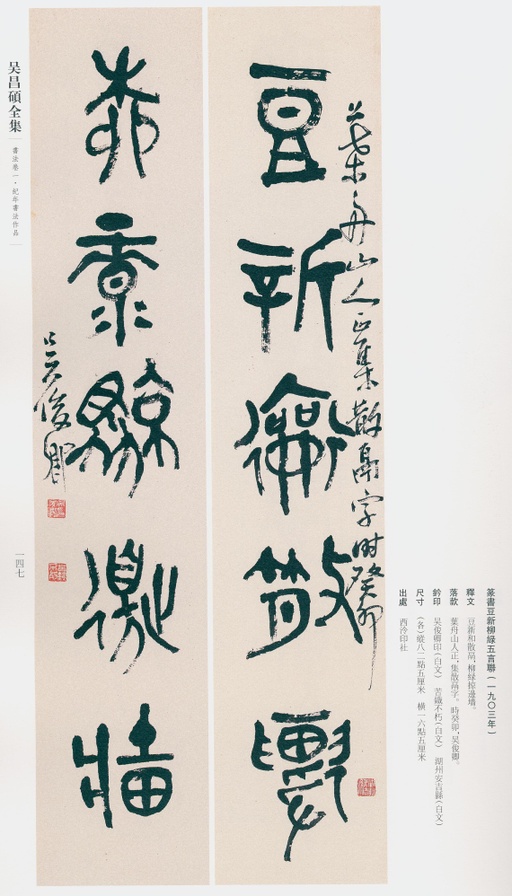 豆新和散鬲
葉舟山人正集散鬲字時癸卯
吳俊卿
吴昌碩全集
書法卷一·紀年書法作品
一四七
篆書豆新柳綠五言聯（一九〇三年）
釋文　豆新和散鬲，柳綠掉邊墻。
落款　葉舟山人正，集散鬲字。時癸卯，吳俊卿。
鈐印　吳俊卿印（白文）　苦鐵不朽（白文）　湖州安吉縣（白文）
尺寸　（各）縱八二點五厘米　橫一六點五厘米
出處　西泠印社